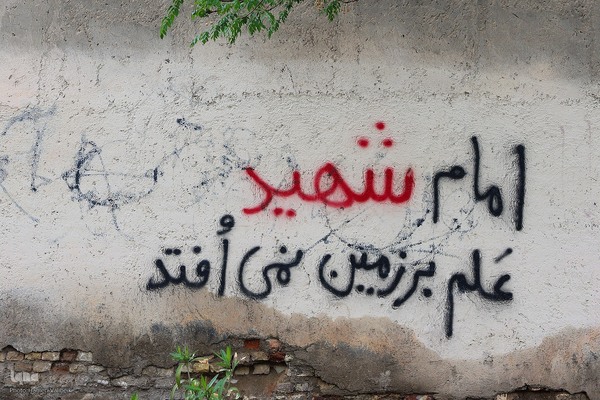 امام شهید
عَلم بر زمین نمی اُفتد